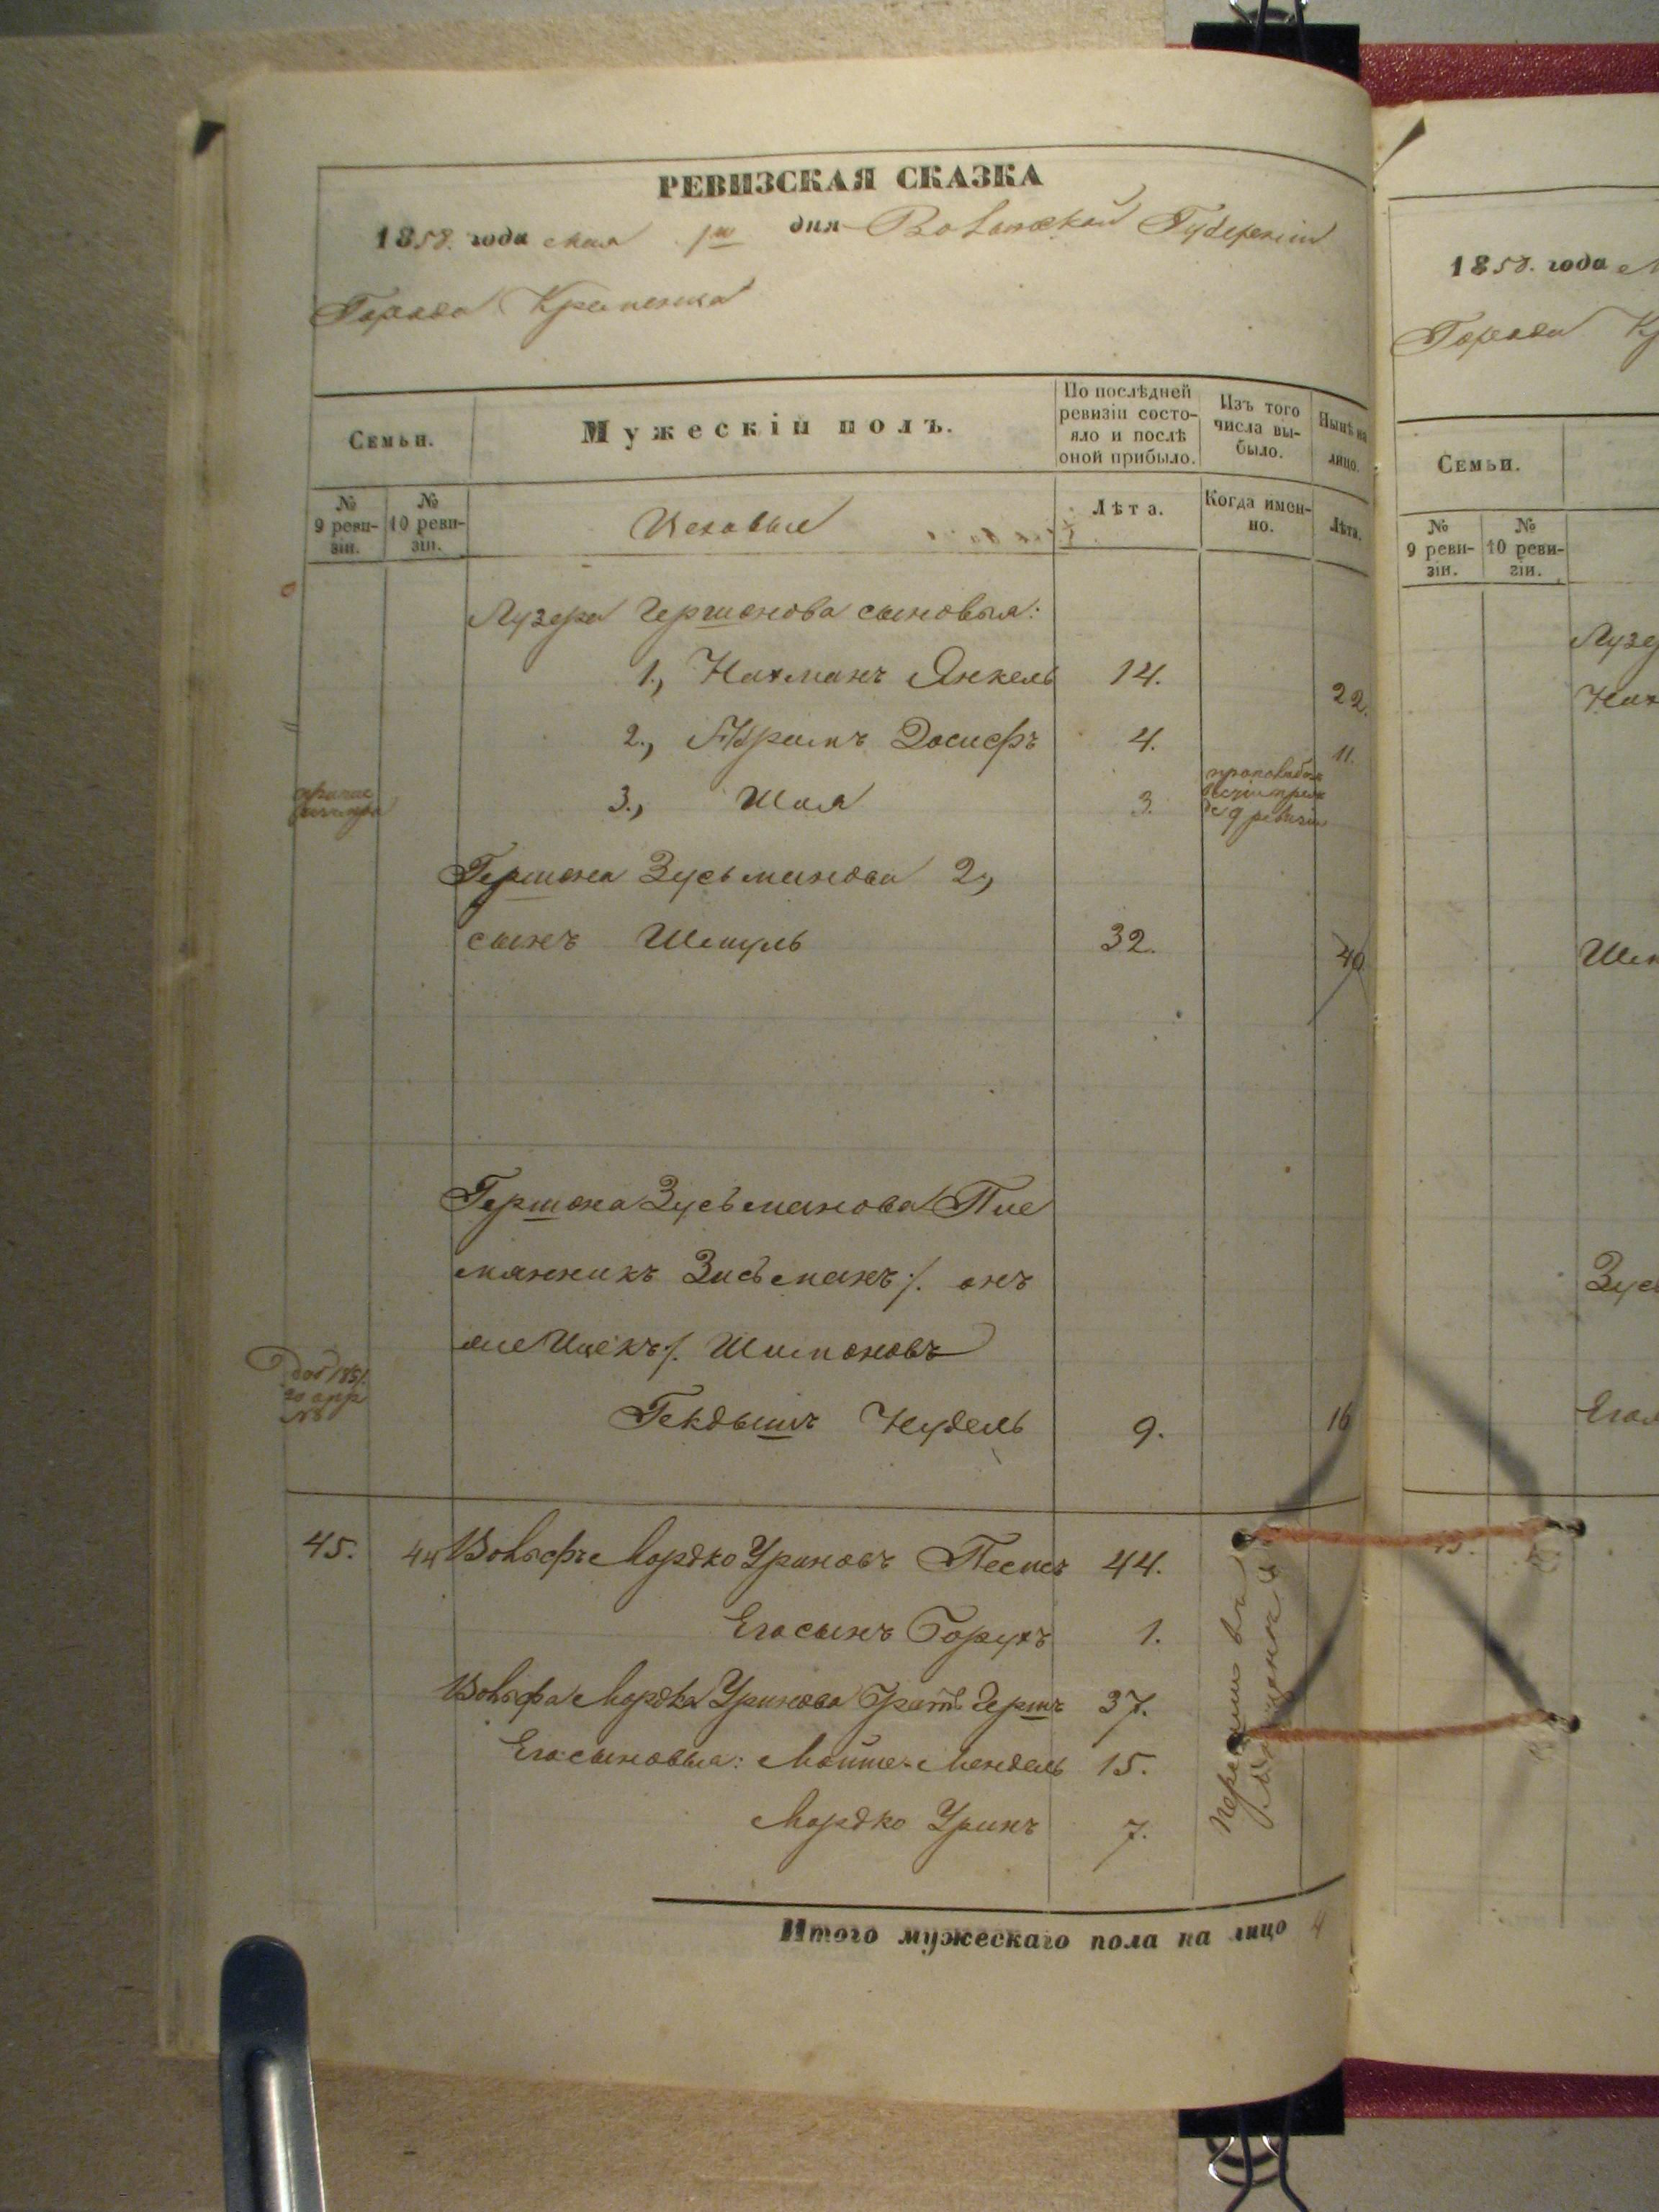 РЕВИЗСКАЯ СКАЗКА
1858. года мая 1го дня Волынской Губернии
Города Кременца
Семьи.
Мужескій полъ.
По послѣдней ревизіи состояло и послѣ оной прибыло.
Изъ того числа выбыло.
Нынѣ на лицо.
№ 9 ревизіи.
№ 10 ревизіи.
Цеховые
Лѣта.
Когда именно.
Лѣта.
Лузера Гершонова сыновья:
1., Нахманъ Янкель 14. 22.
2., Иосифъ 4. 11.
3., Шая 3.
Гершона Зусьманова 2,
сынъ Шмуль 32. 40
Гершона Зусьманова Пле
мянникъ Зисьманъ /. онъ
же Ицекъ /. Шимоновъ
Гекдышъ Нудель 9. 16
45. 44 Вольфъ Мордко Уриновъ 44.
Его сынъ Борухъ 1.
Вольфа Мордка Уринова Братъ Гершъ 37.
Его сыновья: Мойше-Мендель 15.
Мордко Уринъ 7.
Итого мужескаго пола на лицо 4
1858. года
Города
Семьи.
№ 9 ревизіи.
№ 10 ревизіи.